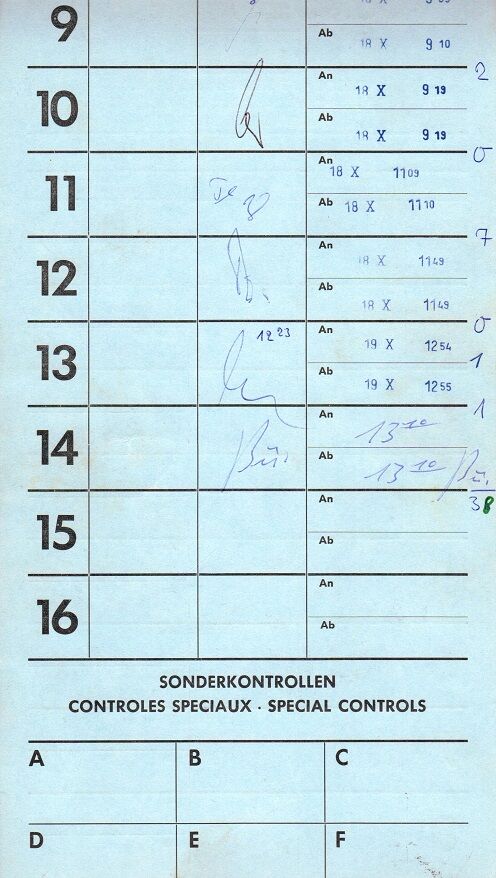 9
Ab 18 X 9 10
An 18 X 9 19 2
10
Ab 18 X 9 19
An 18 X 11 09 0
11
Ab 18 X 11 10
An 18 X 11 49 7
12
Ab 18 X 11 49
An 19 X 12 54 0
12 23
13
Ab 19 X 12 55 1
An 13 10 1
14
Ab 13 10
An 38
15
Ab
An
16
Ab
SONDERKONTROLLEN
CONTROLES SPECIAUX · SPECIAL CONTROLS
A B C
D E F